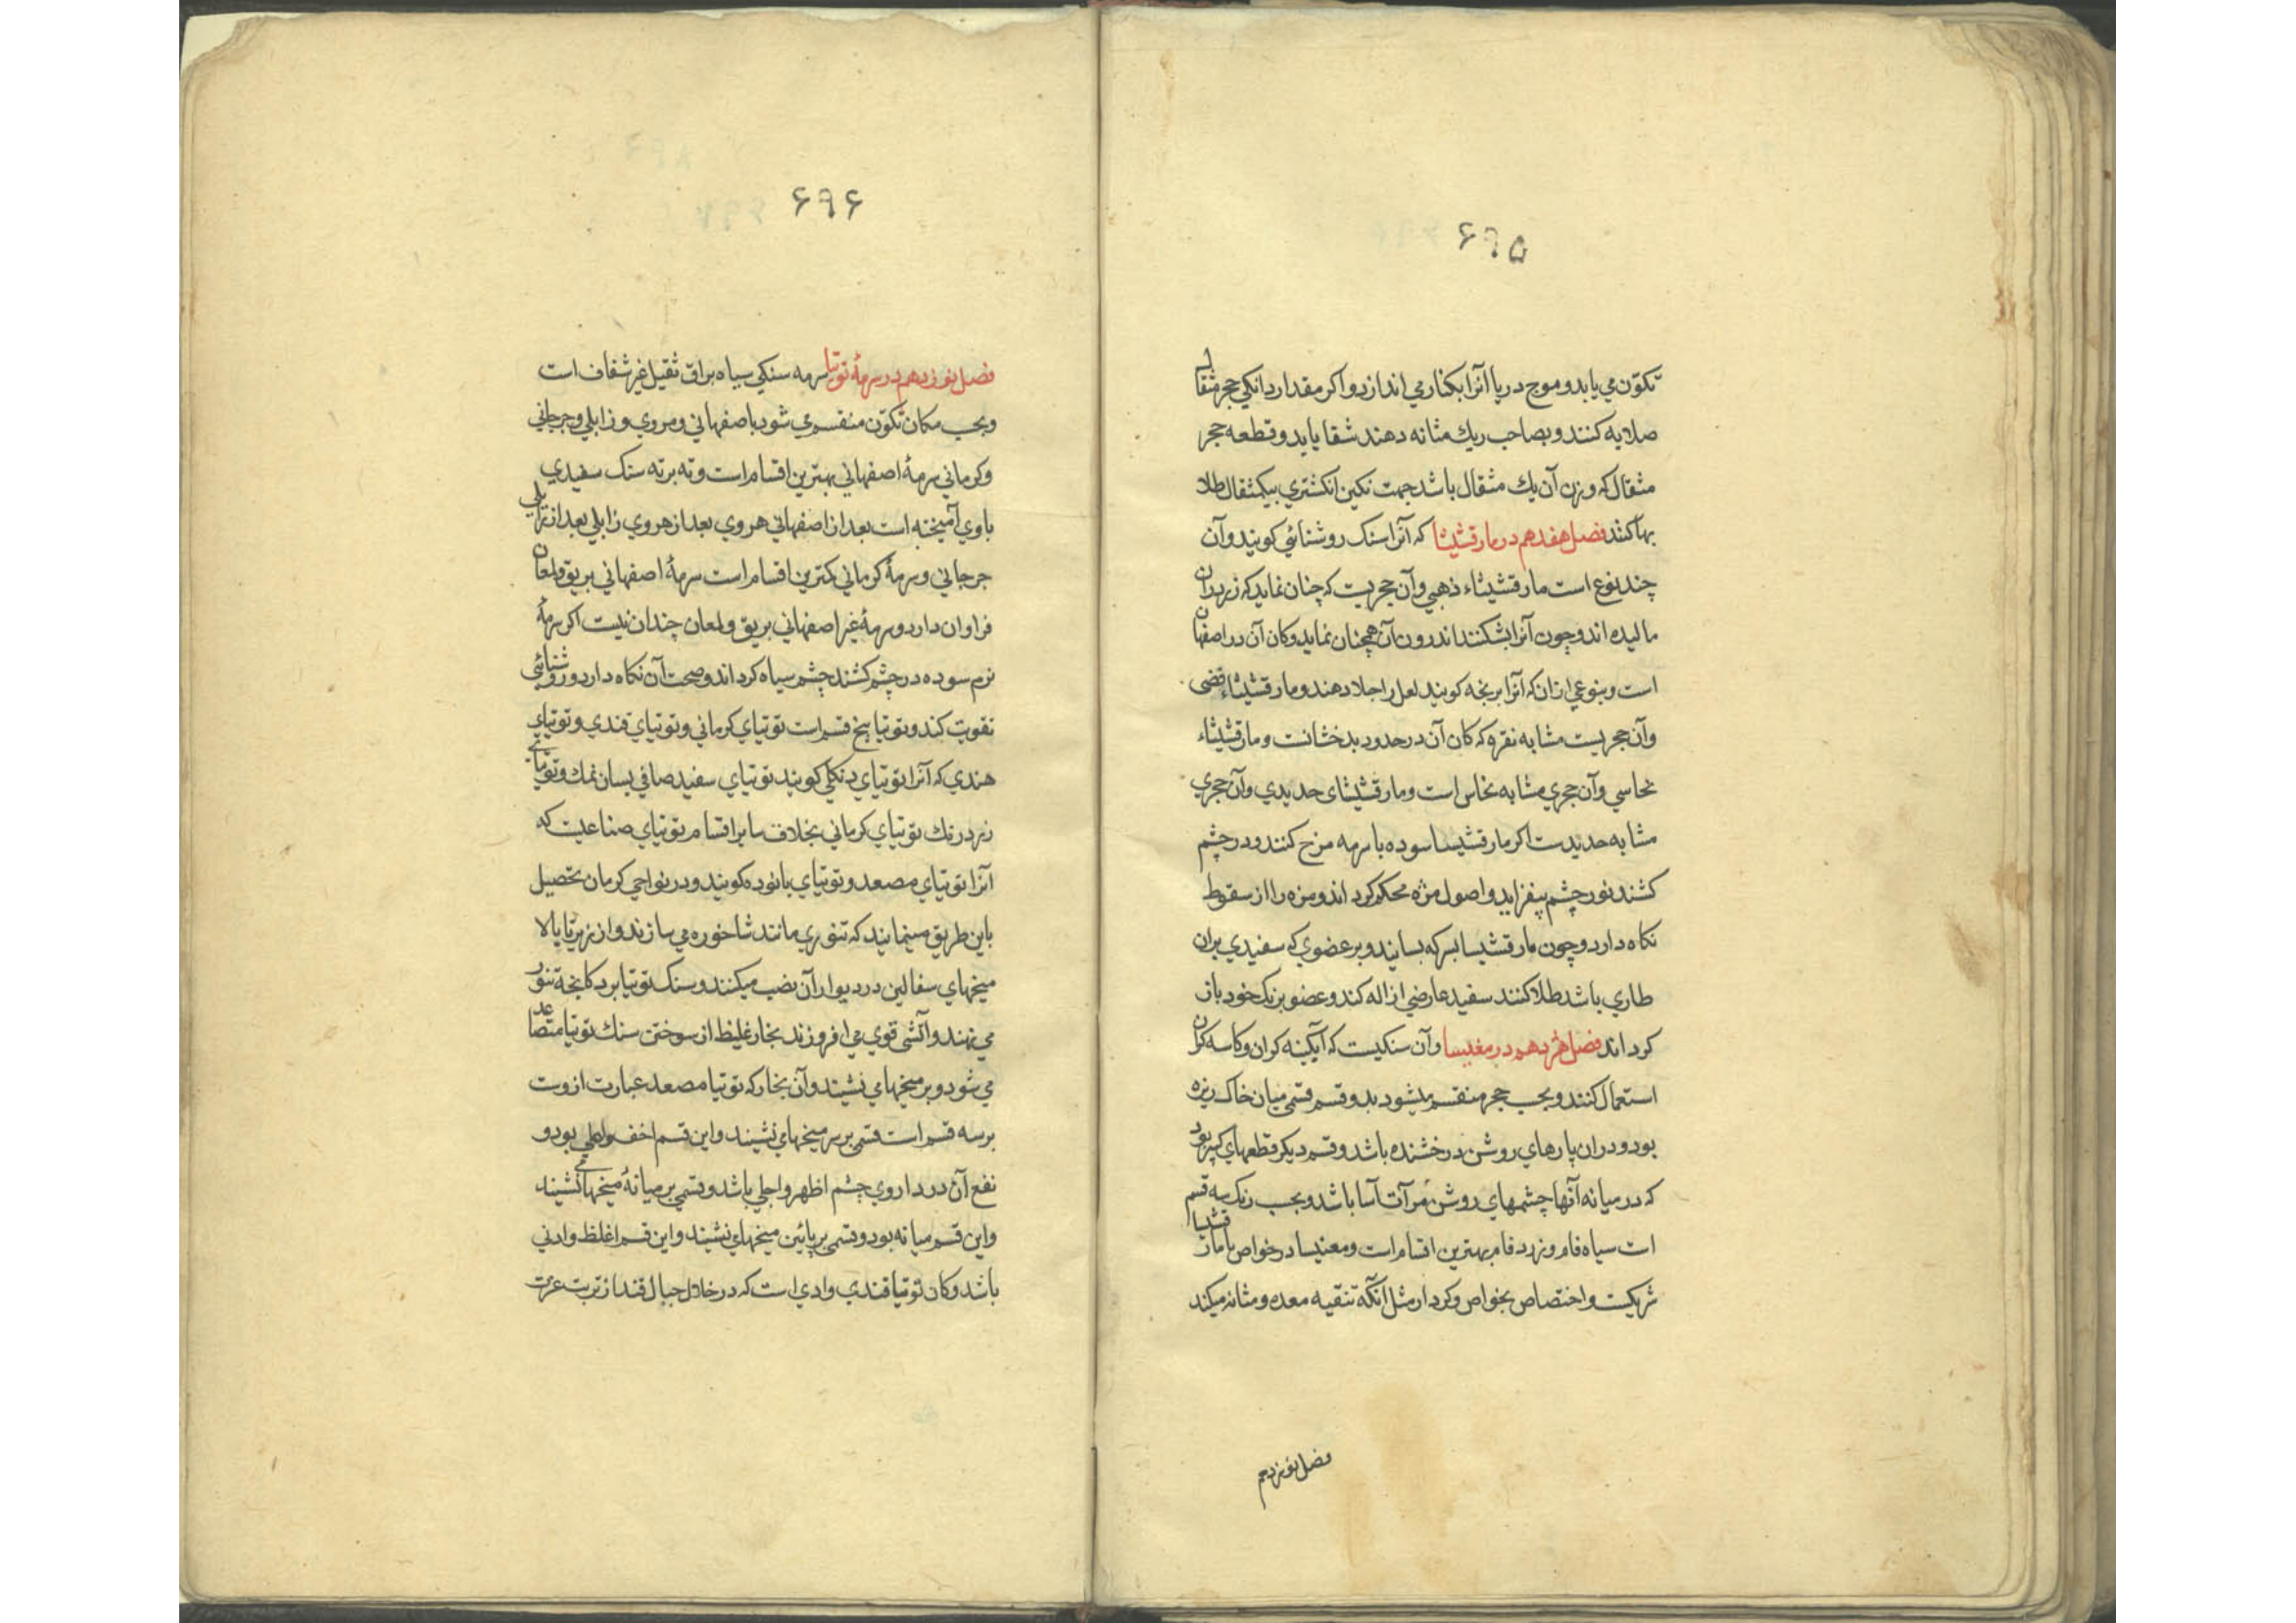 ۶۹۵
تکوّن می یابد و موج دریا آنرا بکنار می اندازد و اکر مقدار دانکی حجر مثقال
صلایه کنند و بصاحب ریك مثانه دهند شفا یابد و قطعه حجر
مثقال که وزن آن یك مثقال باشد جهت نکین انکشتری بیکمثقال طلا
بها کنند فصل هفدهم در مارقشیشا که آنرا سنک روشنائی کویند و آن
چند نوع است مارقشیشاء ذهبی و آن حجریست که چنان نماید که زر بران
مالیده اند و چون آنرا بشکنند اندرون آن همچنان نماید و کان آن در اصفهان
است و بنوعی ازان که آنرا بریخه کویند لعل را جلا دهند و مارقشیشاء فضی
و آن حجریست مشابه نقره که کان آن در حدود بدخشانت و مارقشیشاء
نحاسی و آن حجری مشابه نحاس است و مارقشیشای حدیدی و آن حجری
مشابه حدیدست اکر مارقشیسا سوده با سرمه مزج کنند و در چشم
کشند نور چشم بیفزاید و اصول مژه محکم کرداند و مژه را از سقوط
نکاه دارد و چون مارقشیسا بسرکه بسایند و بر عضوی که سفیدی بران
طاری باشد طلا کنند سفید عارضی ازاله کند و عضو برنک خود باز
کرداند فصل هژدهم در مغنیسا و آن سنکیست که آبکینه کران و کاسه کران
استعمال کنند و بحسب حجر منقسم میشود بدو قسم قسمی میان خاک ریزه
بود و دران پارهای روشن درخشنده باشد و قسم دیکر قطعهای کبیر بود
که در میانه آنها چشمهای روشن مرآت آسا باشد و بحسب رنک سه قسم
است سیاه فام و زرد فام بهترین اقسام است و مغنیسا در خواص با مارقشیا
شریکست و اختصاص بخواص و کردار مثل آنکه تنقیه معده و مثانه میکند
فصل نوزدهم
۶۹۶
فصل نوزدهم در سرمهٔ توتیا سرمه سنکی سیاه براق ثقیل غیر شفاف است
و بحسب مکان تکوّن منقسم می شود باصفهانی و مروی و زابلی و جرجانی
و کرمانی سرمهٔ اصفهانی بهترین اقسام است و ته برته سنک سفیدی
با وی آمیخته است بعد از اصفهانی هروی بعد از هروی زابلی بعد از زابلی
جرجانی و سرمهٔ کرمانی کمترین اقسام است سرمهٔ اصفهانی بریق و لمعان
فراوان دارد و سرمهٔ غیر اصفهانی بریق و لمعان چندان نیست اکر سرمهٔ
نرم سوده در چشم کشند چشم سیاه کرداند و صحت آن نکاه دارد و روشنائی
تقویت کند و توتیا پنج قسم است توتیای کرمانی و توتیای قندی و توتیای
هندی که آنرا توتیای دنکلی کویند توتیای سفید صافی بسان نمك و توتیائی
زرد رنك توتیای کرمانی بخلاف سایر اقسام توتیای صناعیست که
آنرا توتیای مصعد و توتیای بانوده کویند و در نواحی کرمان تحصیل
باین طریق مینمایند که تنوری مانند شاخوره می سازند و از زیر تا بالا
میخهای سفالین در دیوار آن نصب میکنند و سنک توتیا بر دکانجهٔ تنور
می نهند و آتشی قوی می افروزند بخار غلیظ از سوختن سنك توتیا متصاعد
می شود و بر میخها می نشیند و آن بخار که توتیا مصعد عبارت ازوست
بر سه قسم است قسمی بر سر میخهای نشیند و این قسم اخف و اعلی بود و
نفع آن در داروی چشم اظهر و اجلی باشد و قسمی بر میانهٔ میخها می نشیند
و این قسم میانه بود و قسمی بر پائین میخهای نشیند و این قسم اغلظ و ادنی
باشد و کان توتیا قندی وادی است که در خلال جبال قند از تربت عزت